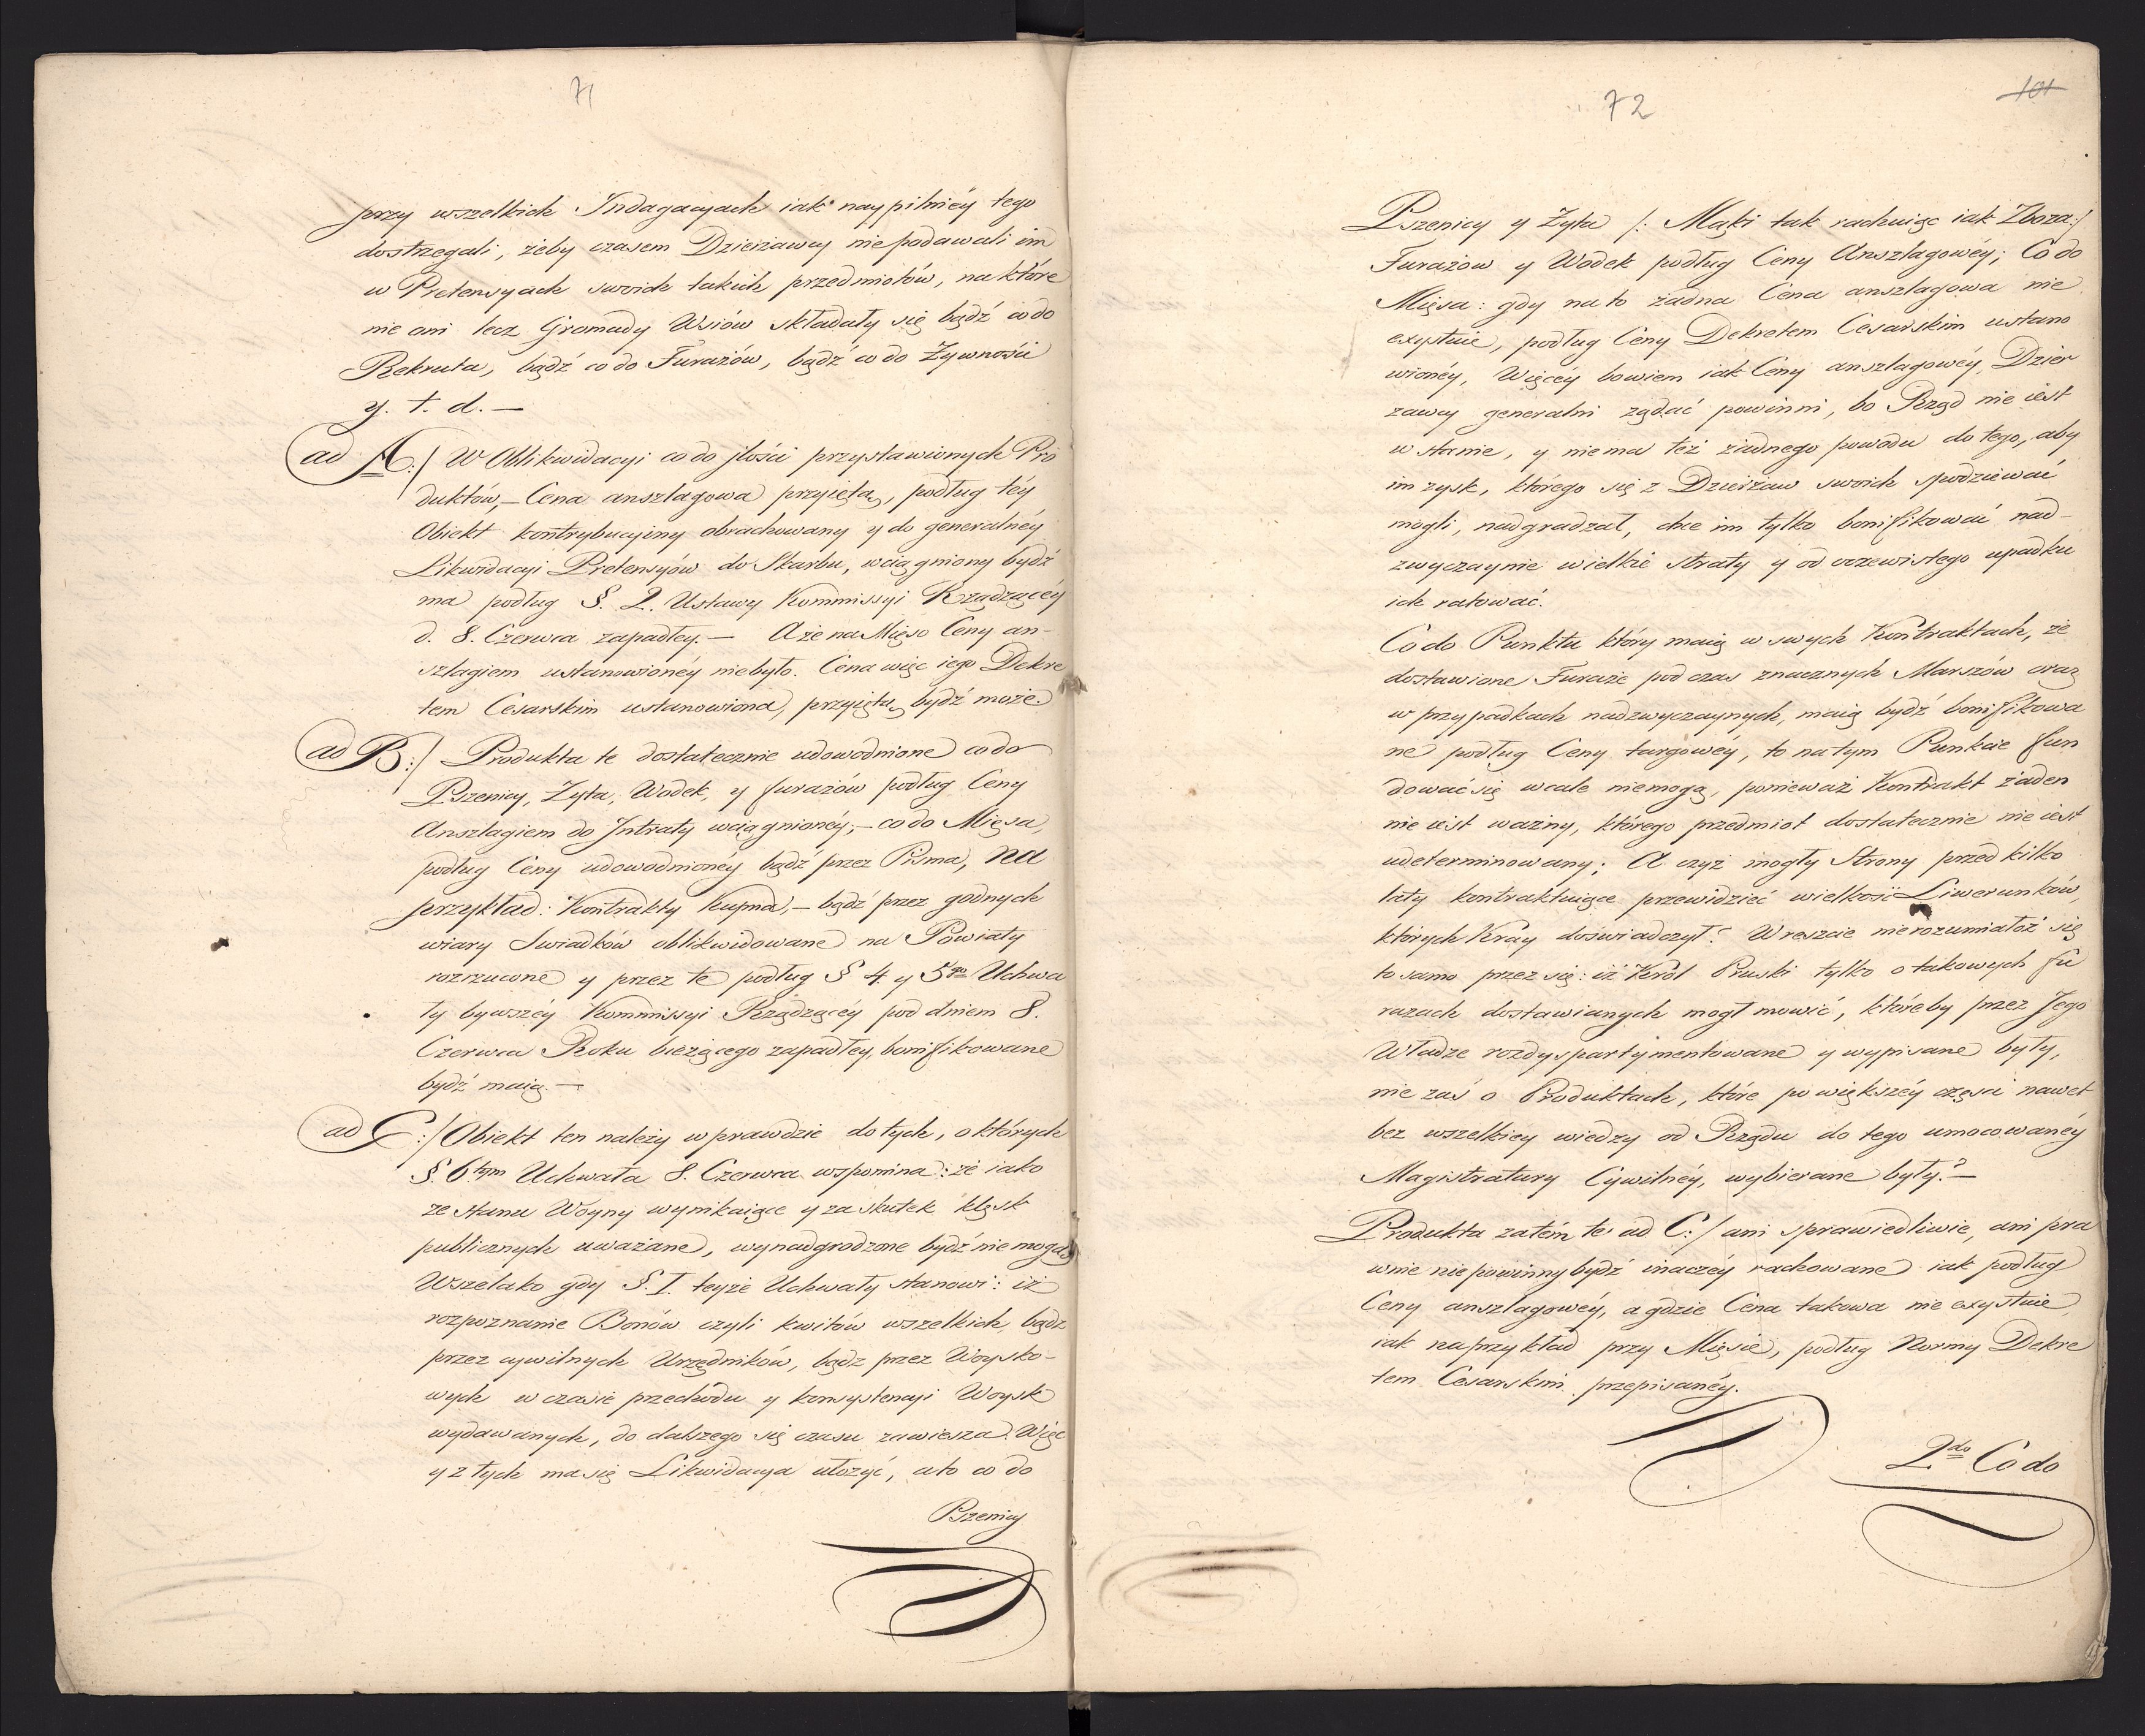 71
przy wszelkich Indagacyach iak naypilniéy tego
dostrzegali, żeby czasem Dzierżawcy niepodawali im
w Pretensyach swoich takich przedmiotów, na które
nie oni lecz Gromady Wsiów składały się bądź co do
Rekruta, bądź co do Furażów, bądź co do Żywności
y. t. d. —
ad A:/ W Oblikwidacyi co do ilości przystawionych Pro
duktów, — Cena anszlagowa przyięta, podług téy
Obiekt kontrybucyiny obrachowany y do generalnéy
Likwidacyi Pretensyów do Skarbu, wciągniony bydź
ma podług §. 2. Ustawy Kommissyi Rządzącéy
d. 8. Czerwca zapadłey. — A że na Mięso Ceny an-
szlagiem ustanowionéy niebyło. Cena więc iego Dekre
tem Cesarskim ustanowiona, przyięta bydź może.
ad B:/ Produkta te dostatecznie udowodnione co do
Pszenicy, Żyta, Wodek, y furażów podług Ceny
Anszlagiem do Intraty wciągnionéy; — co do Mięsa,
podług Ceny udowodnionéy bądź przez Pisma, na
przykład: Kontrakty Kupna, — bądź przez godnych
wiary Swiadków oblikwidowane na Powiaty
rozrzucone y przez te podług § 4. y 5go Uchwa
ły bywszéy Kommissyi Rządzącéy pod dniem 8.
Czerwca Roku bieżącego zapadłey, bonifikowane
bydź maią. —
ad C:/ Obiekt ten należy wprawdzie do tych, o których
§. 6tym Uchwała 8. Czerwca wspomina: że iako
ze stanu Woyny wynikaiące y za skutek klęsk
publicznych uważane, wynadgrodzone bydź nie mogą
Wszelako gdy §. I. teyże Uchwały stanowi: iż
rozpoznanie Bonów czyli kwitów wszelkich bądz
przez cywilnych Urzędników, bądz przez Woysko-
wych w czasie przechodu y konsystencyi Woysk
wydawanych, do dalszego się czasu zawiesza. Więc
y z tych ma się Likwidacya ułożyć, a to co do
Pszenicy
72
101
Pszenicy y Żyta /: Mąki tak rachuiąc iak Zboża:/
Furażow y Wodek podług Ceny Anszlagowéy; Co do
Mięsa: gdy na to żadna Cena anszlagowa nie
exystuie, podług Ceny Dekretem Cesarskim ustano
wionéy, Więcéy bowiem iak Ceny anszlagowéy, Dzier
zawcy generalni ządać powinni, bo Rząd nie iest
w stanie, y niema też żadnego powodu do tego, aby
im zysk, którego się z Dzierżaw swoich spodziewać
mogli, nadgradzał, chce im tylko bonifikować nad-
zwyczaynie wielkie straty y od oczewistego upadku
ich ratować.
Co do Punktu który maią w swych Kontraktach, że
dostawione Furaże pod czas znacznych Marszów oraz
w przypadkach nadzwyczaynych, maią bydź bonifikowa
ne podług Ceny targowéy, to na tym Punkcie fun
dować się wcale niemogą, ponieważ Kontrakt żaden
nie iest ważny, którego przedmiot dostatecznie nie iest
udeterminowany; A czyż mogły Strony przed kilko
laty kontraktuiące przewidzieć wielkość Liwerunków,
których Kray doświadczył? Wreszcie nierozumiałoż się
to samo przez się: iż Król Pruski tylko o takowych fu
razach dostawianych mogł mowić, któreby przez Jego
Władze rozdyspartymentowane y wypisane były,
nie zaś o Produktach, które po większéy części nawet
bez wszelkiey wiedzy od Rządu do tego umocowanéy
Magistratury Cywilnéy, wybierane były? —
Produkta zatém te ad C:/ ani sprawiedliwie, ani pra
wnie niepowinny bydź inaczéy rachowane iak podług
Ceny anszlagowéy, a gdzie Cena takowa nie exystuie,
iak naprzykład przy Mięsie, podług Normy Dekre
tem Cesarskim przepisanéy.
2do Co do